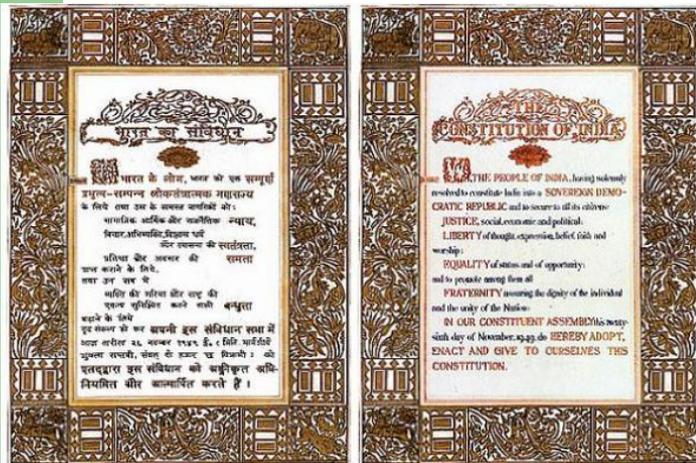 भारत का संविधान
हम भारत के लोग, भारत को एक सम्पूर्ण
प्रभुत्व-सम्पन्न लोकतंत्रात्मक गणराज्य
के लिये तथा उस के समस्त नागरिकों को:
सामाजिक आर्थिक और राजनैतिक न्याय,
विचार, अभिव्यक्ति, विश्वास धर्म
और उपासना की स्वतंत्रता,
प्रतिष्ठा और अवसर की समता
प्राप्त कराने के लिये,
तथा उन सब में
व्यक्ति की गरिमा और राष्ट्र की
एकता सुनिश्चित करने वाली बन्धुता
बढ़ाने के लिये
दृढ़ संकल्प हो कर अपनी इस संविधान सभा में
आज तारीख २६ नवम्बर १९४९ ई०
एतद्द्वारा इस संविधान को अङ्गीकृत अधि-
नियमित और आत्मार्पित करते हैं।
THE
CONSTITUTION OF INDIA
WE, THE PEOPLE OF INDIA, having solemnly
resolved to constitute India into a SOVEREIGN DEMO-
CRATIC REPUBLIC and to secure to all its citizens:
JUSTICE, social, economic and political;
LIBERTY of thought, expression, belief, faith and
worship;
EQUALITY of status and of opportunity;
and to promote among them all
FRATERNITY assuring the dignity of the individual
and the unity of the Nation;
IN OUR CONSTITUENT ASSEMBLY this twenty-
sixth day of November, 1949, do HEREBY ADOPT,
ENACT AND GIVE TO OURSELVES THIS
CONSTITUTION.